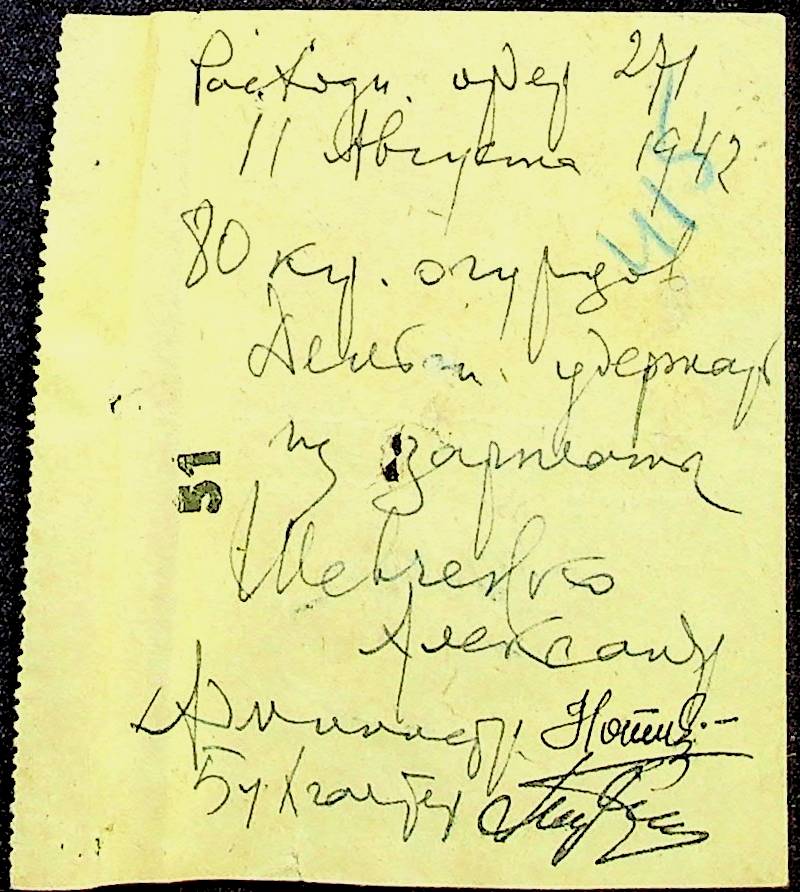 Расходн. ордер 271
11 Августа 1942
415
80 кг. огурцов
Деньги удержать
из зарплаты
51
Шевченко
Александр
Администр.
Бухгалтер